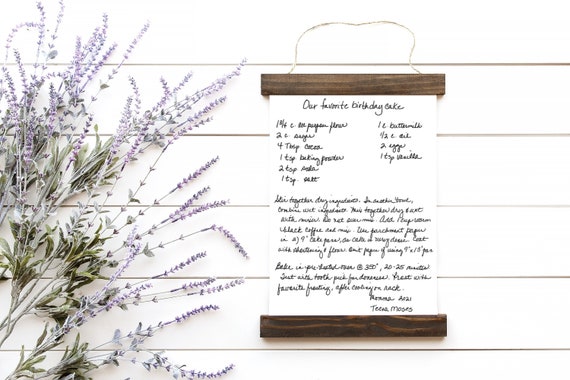 Our favorite birthday cake
1 3/4 c all purpose flour
2 c sugar
4 Tbsp cocoa
1 tsp baking powder
2 tsp soda
1 tsp salt
1 c buttermilk
1/2 c oil
2 eggs
1 tsp vanilla
Stir together dry ingredients. In another bowl,
combine wet ingredients. Mix together dry & wet
with mixer. Do not over mix. Add 1 cup warm
black coffee and mix. Use parchment paper
in 2) 9" cake pans, so cake is easy. Coat
with shortening & flour. Omit paper if using 9" x 13" pan
Bake in pre-heated oven @ 350°, 20-25 minutes
Test with tooth pick for doneness. Frost with
favorite frosting, after cooling on rack.
Momma 2021
Teena Moses